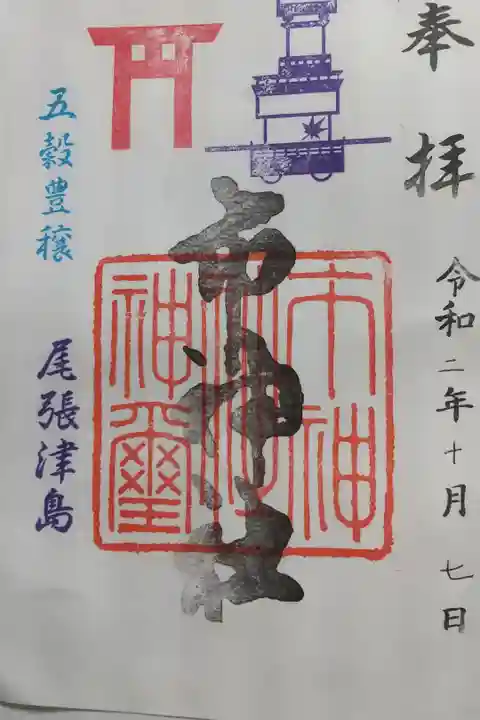 奉拝
令和二年十月七日
市神社
市神
神璽
五穀豊穣
尾張津島